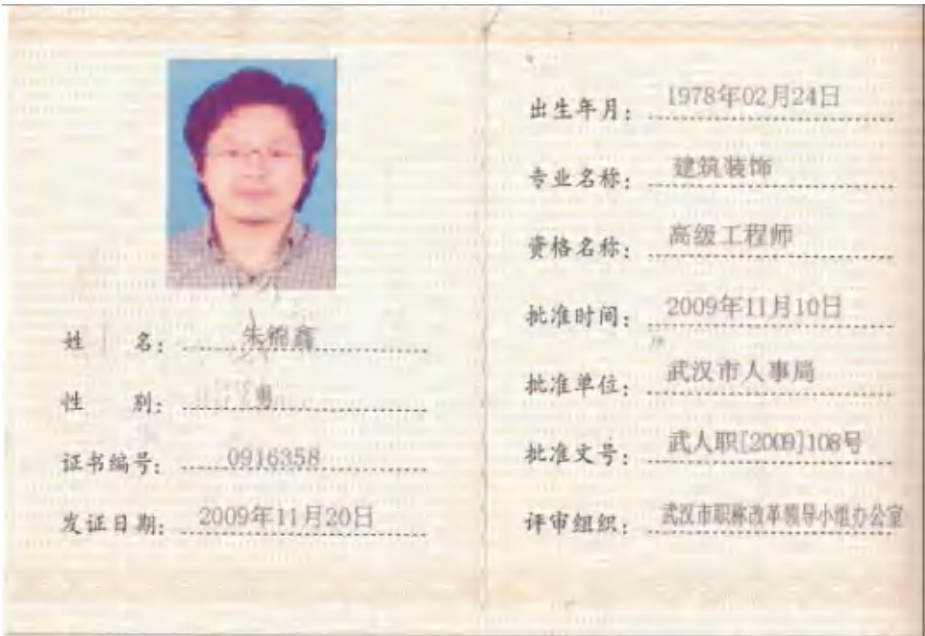 姓 名：朱锦鑫
性 别：男
证书编号：0916358
发证日期：2009年11月20日
出生年月：1978年02月24日
专业名称：建筑装饰
资格名称：高级工程师
批准时间：2009年11月10日
批准单位：武汉市人事局
批准文号：武人职[2009]108号
评审组织：武汉市职称改革领导小组办公室